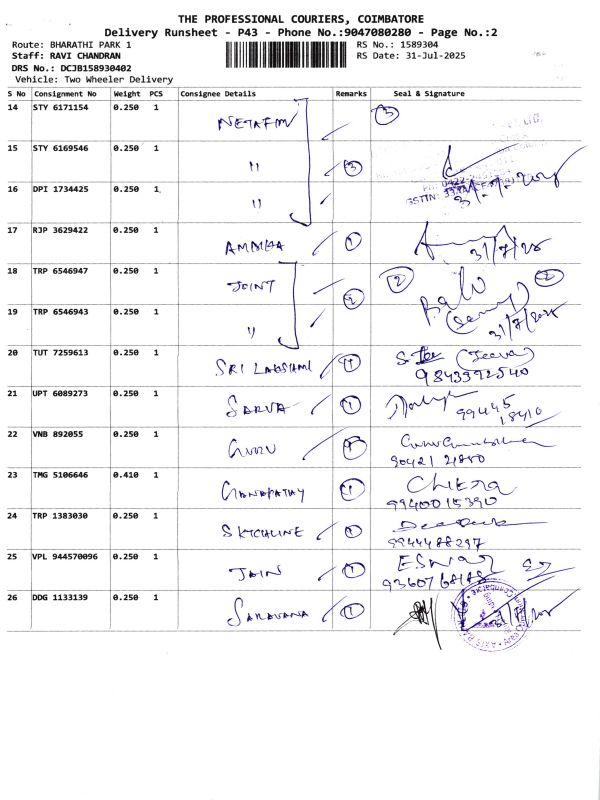 THE PROFESSIONAL COURIERS, COIMBATORE
Delivery Runsheet - P43 - Phone No.:9047080280 - Page No.:2
Route: BHARATHI PARK 1 RS No.: 1589304
Staff: RAVI CHANDRAN RS Date: 31-Jul-2025
DRS No.: DCJB158930402
Vehicle: Two Wheeler Delivery
S No Consignment No Weight PCS Consignee Details Remarks Seal & Signature
14 STY 6171154 0.250 1 NETAFIM 3
15 STY 6169546 0.250 1 " 3
16 DPI 1734425 0.250 1 "
17 RJP 3629422 0.250 1 AMMIKA 1 31/7/25
18 TRP 6546947 0.250 1 JOINT 2 2 2
19 TRP 6546943 0.250 1 " 31/7/25
20 TUT 7259613 0.250 1 SRI LAKSHMI 1 (Jeeva)
9843392540
21 UPT 6089273 0.250 1 SARVA 1 99445
18410
22 VNB 892055 0.250 1 GURU 1
90421 21880
23 TMG 5106646 0.410 1 GANAPATHY 1
9940015390
24 TRP 1383030 0.250 1 1
9944488297
25 VPL 944570096 0.250 1 JAIN 1 ESWAR
26 DDG 1133139 0.250 1 SARAVANA 1